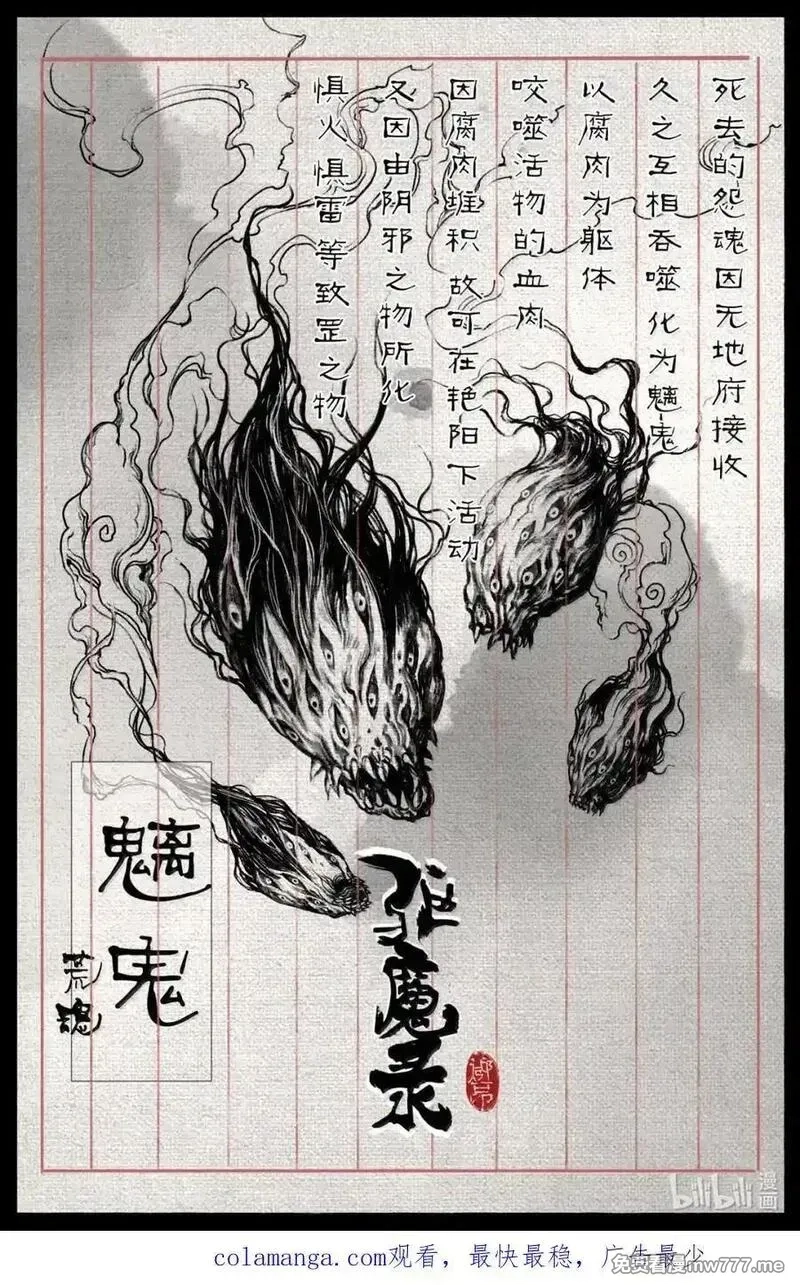 死去的怨魂因无地府接收
久之互相吞噬 化为魑鬼
以腐肉为躯体
咬噬活物的血肉
因腐肉堆积 故可在艳阳下活动
又因由阴邪之物所化
惧火 惧雷 等致罡之物
魑鬼
荒魂
驱魔录
bilibili 漫画
colamanga.com观看，最快最稳，广告最少
免费看漫mw777.me